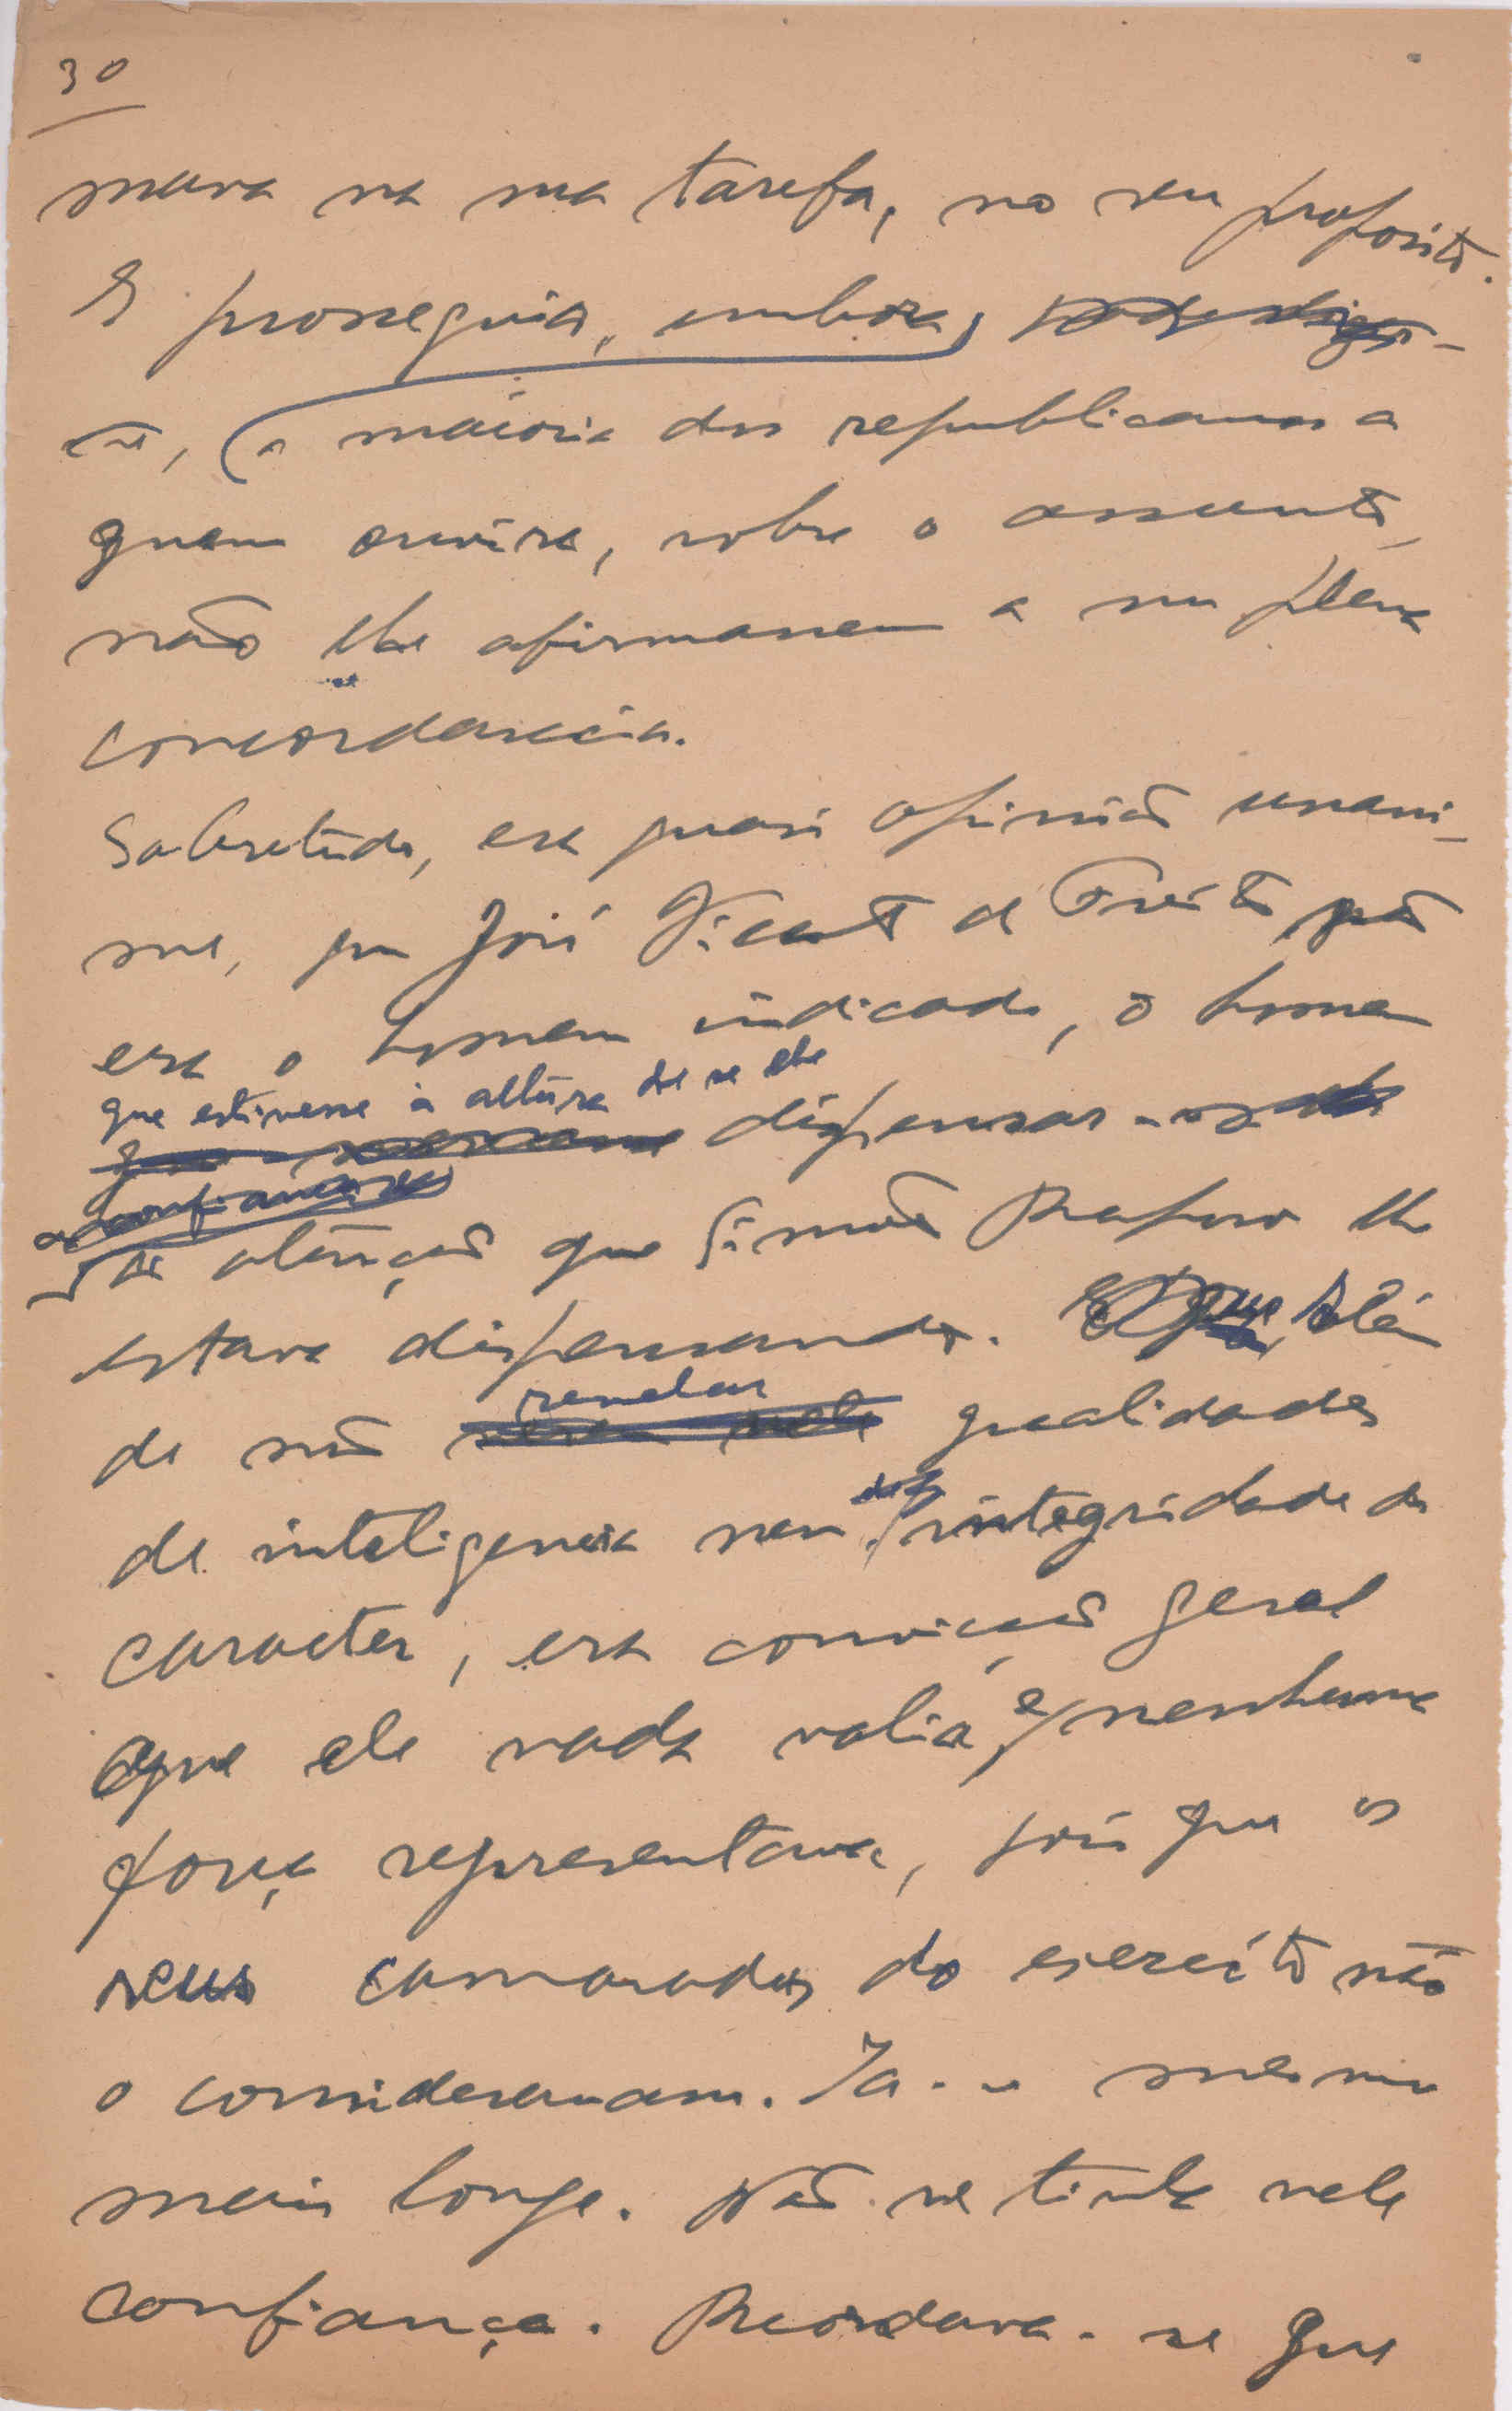 30
mava na sua tarefa, no seu proposito.
E prosseguia, embora,
a maioria dos republicanos a
quem ouvira, sobre o assunto,
não lhe afirmassem a sua plena
concordancia.
Sobretudo, era quasi opinião unani-
me, que José Vicente de Freitas não
era o homem indicado, o homem
que estivesse à altura de se lhe
dispensar
a atenção que Simão Raposo lhe
estava dispensando. Além
de não revelar qualidades
de inteligencia nem de integridade de
caracter, era convicção geral
que ele nada valia e nenhuma
força representava, pois que os
seus camaradas do exercito não
o consideravam. Ia-se mesmo
mais longe. Não se tinha nele
confiança. Recordava-se que